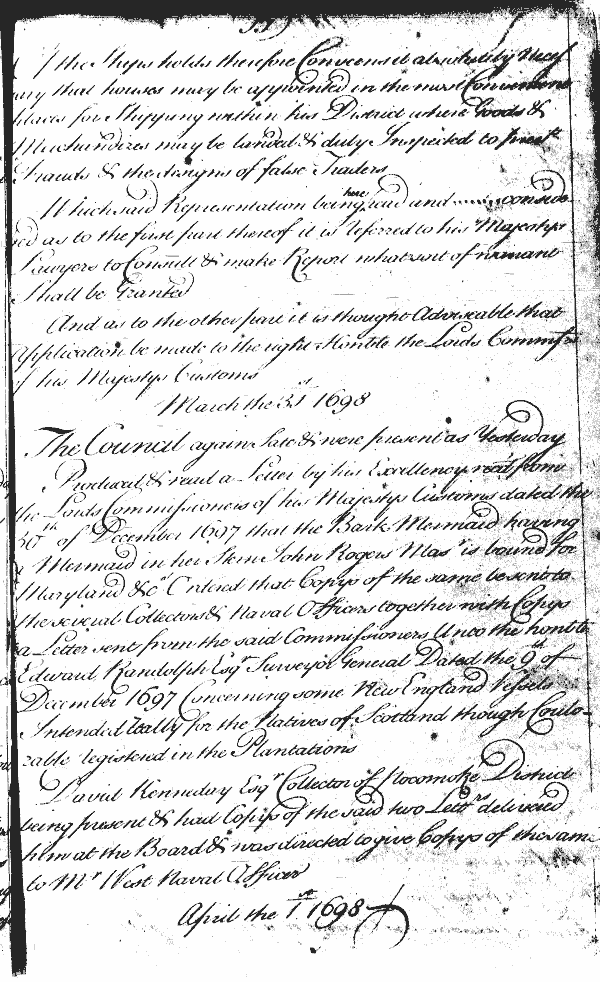 the Ships holds therefore Conceives it absolutely Necess
ary that houses may be appointed in the most Convenient
places for Shipping within his District where Goods &
Merchandizes may be landed & duly Inspected to prevt
Frauds & the designs of false Traders
Which said Representation being here read and conside
red as to the first part thereof it is referred to his Majestys
Lawyers to Consult & make Report what sort of warrant
Shall be Granted
And as to the other part it is thought Adviseable that
Application be made to the right Honble the Lords Commissrs
of his Majestys Customs
March the 31st 1698
The Council again Sate & were present as Yesterday
Produced & read a Letter by his Excellency read from
the Lords Commissioners of his Majestys Customs dated the
30th of December 1697 that the Bark Mermaid having
a Mermaid in her Stern John Rogers Masr is bound for
Maryland &ca Ordered that Copys of the same be sent to
the several Collectors & Naval Officers together with Copys
a Letter sent from the said Commissioners Unto the honble
Edward Randolph Esqr Surveyor General Dated the 9th of
December 1697 Concerning some New England Vessels
Intended really for the Natives of Scotland though Coulo-
rable registered in the Plantations
David Kenneday Esqr Collector of Pocomoke District
being present & had Copys of the said two Lettrs delivered
him at the Board & was directed to give Copys of the same
to Mr West Naval Officer
April the 1st 1698